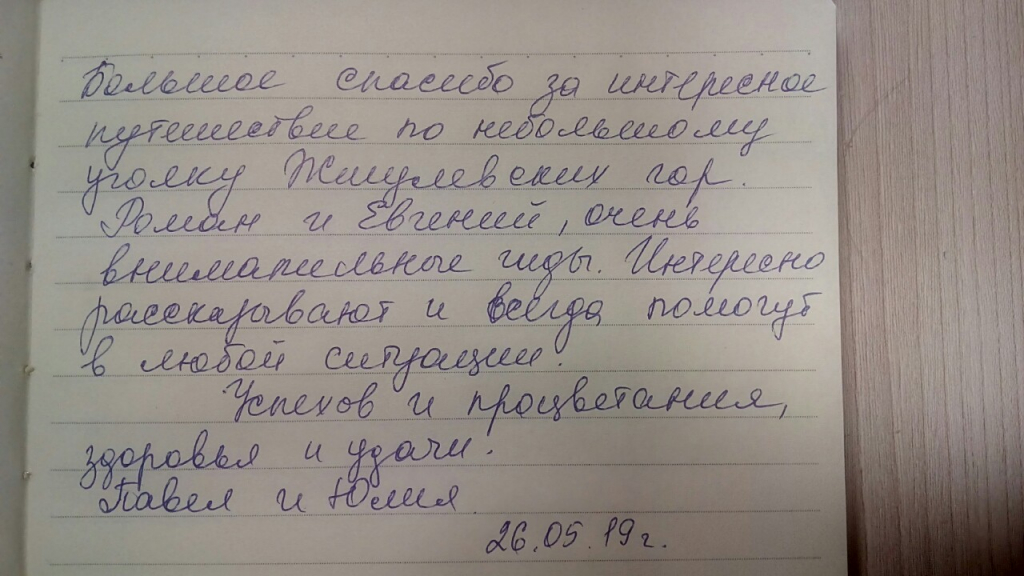 Большое спасибо за интересное
путешествие по небольшому
уголку Жигулевских гор.
Роман и Евгений, очень
внимательные гиды. Интересно
рассказывают и всегда помогут
в любой ситуации.
Успехов и процветания,
здоровья и удачи.
Павел и Юлия
26.05.19г.